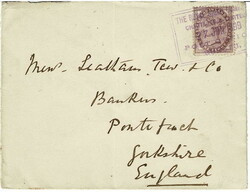 Messrs. Leatham, Tew & Co
Bankers
Pontefract
Yorkshire
England